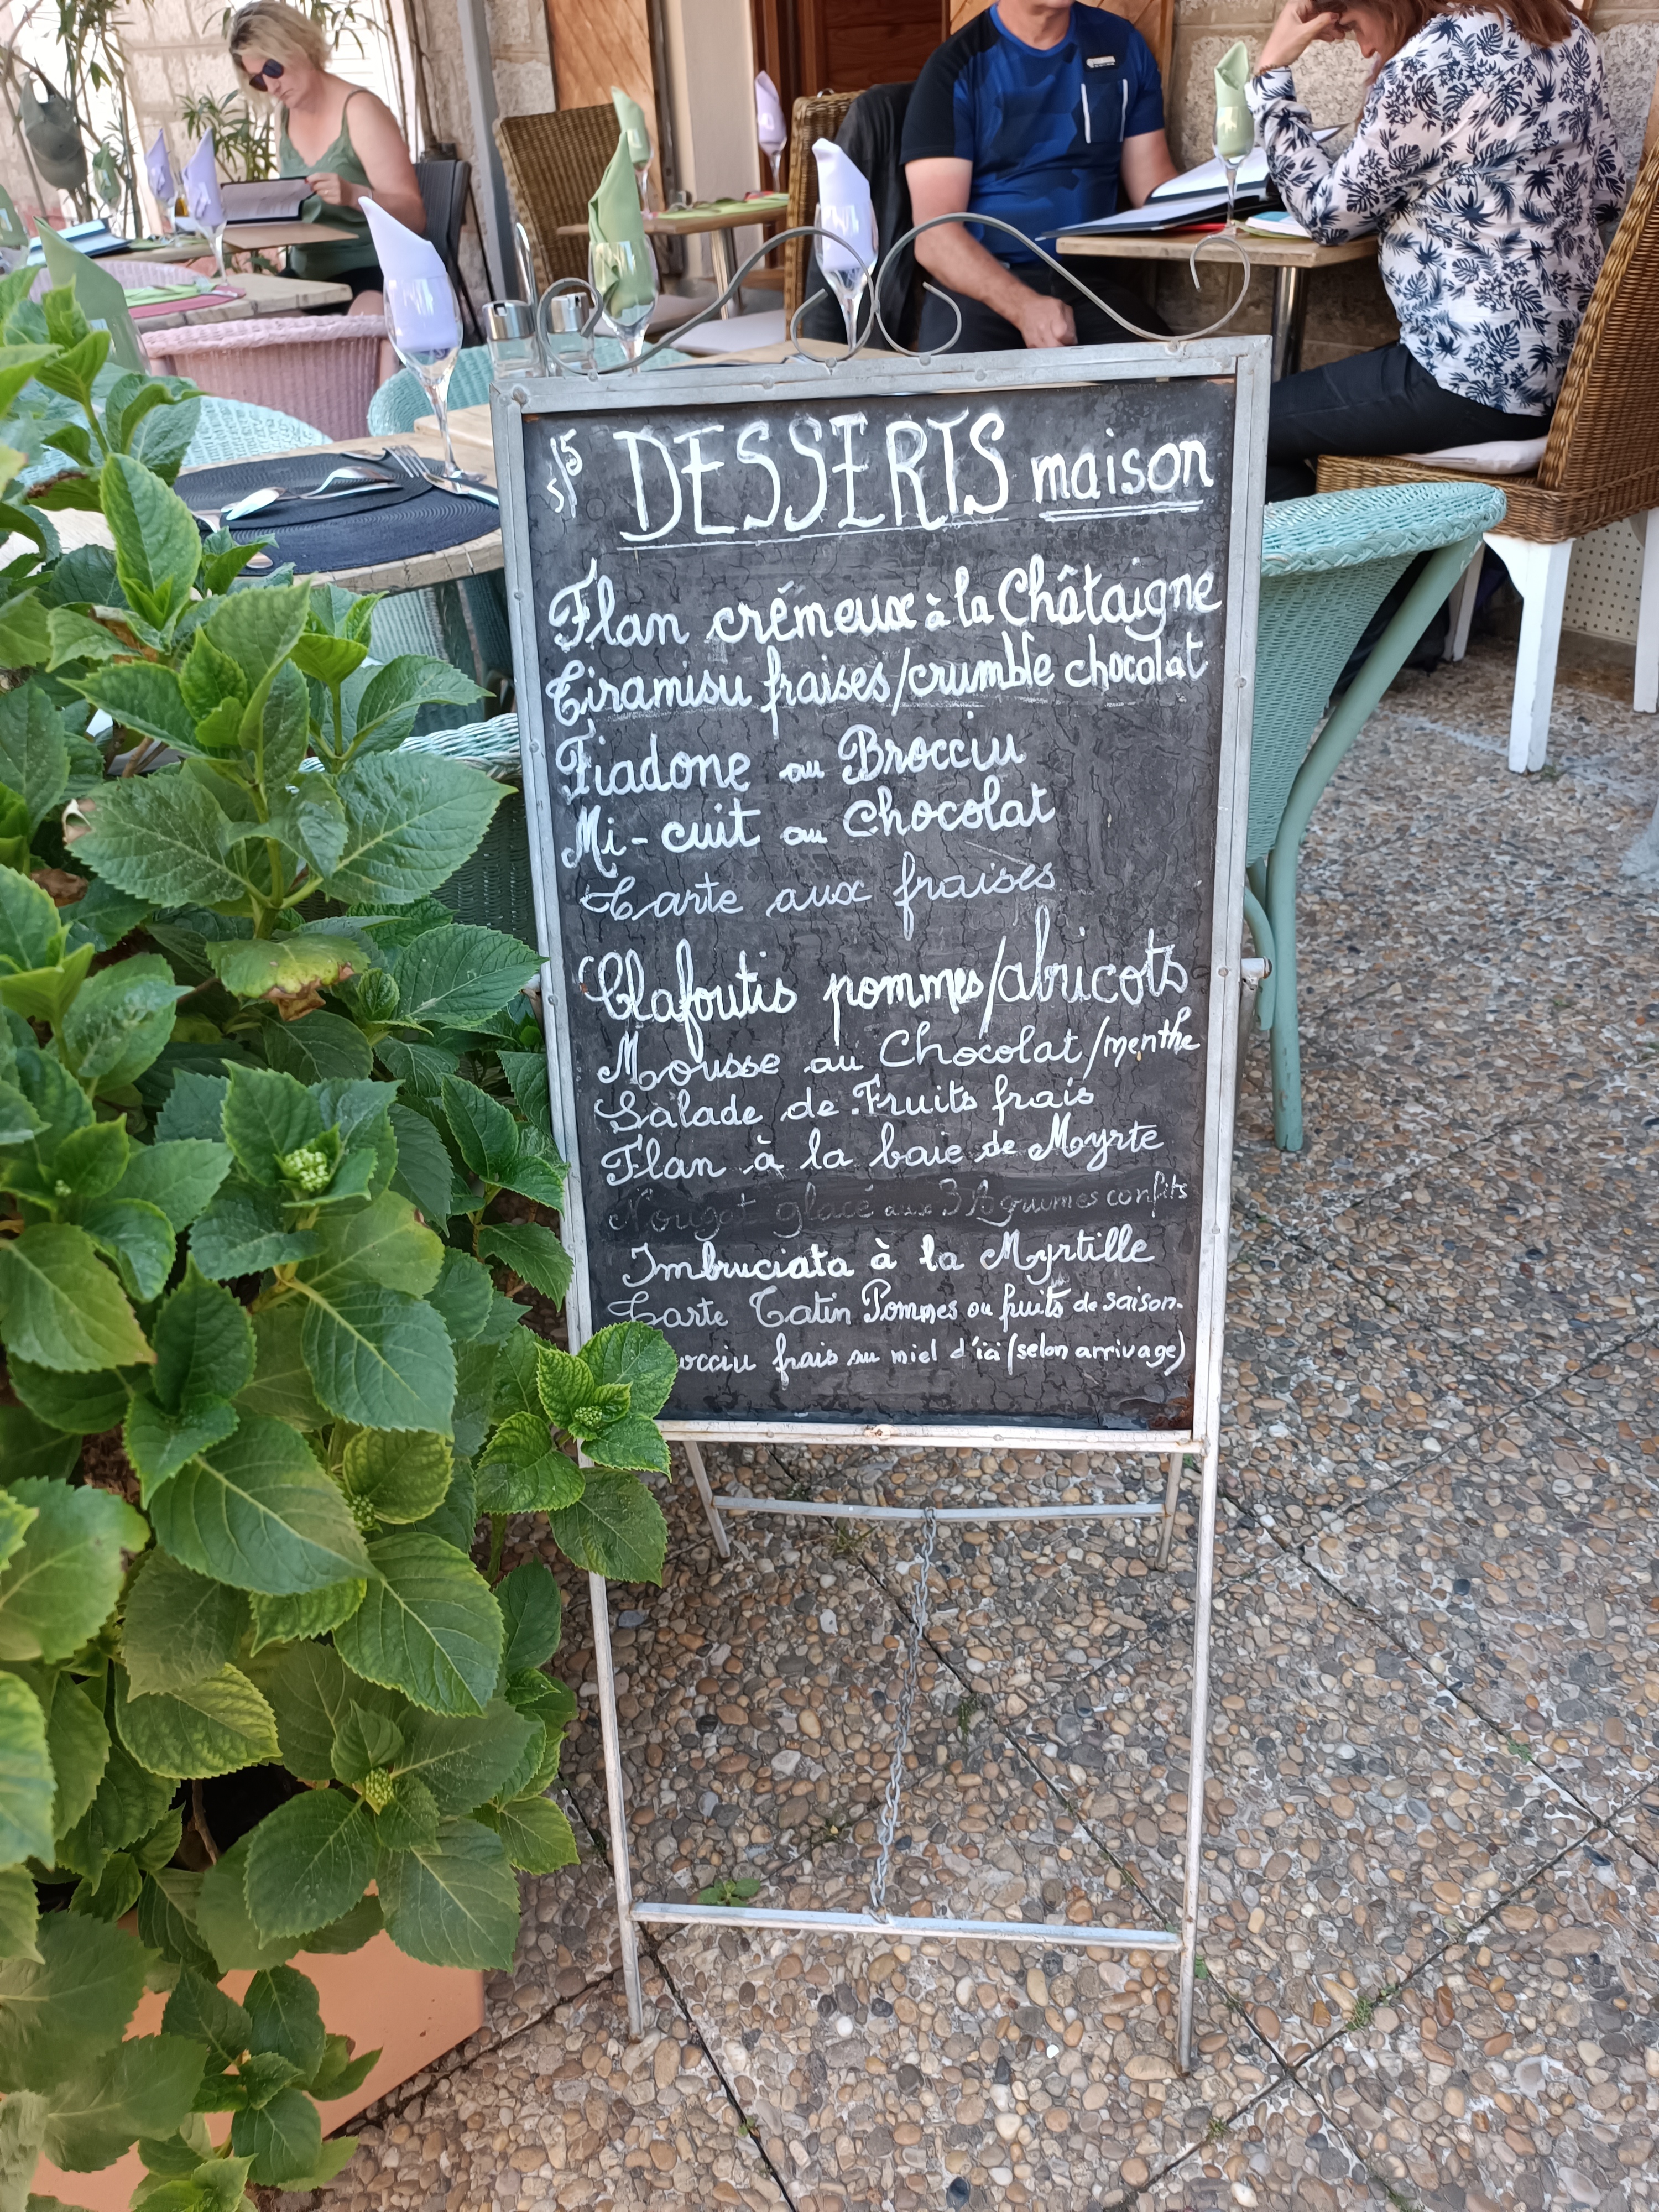 DESSERTS maison
Flan crémeux à la Châtaigne
Tiramisu fraises/crumble chocolat
Fiadone au Brocciu
Mi-cuit au Chocolat
Tarte aux fraises
Clafoutis pommes/abricots
Mousse au Chocolat/menthe
Salade de Fruits frais
Flan à la baie de Myrte
Nougat glacé aux 3 Agrumes confits
Imbruciata à la Myrtille
Tarte Tatin Pommes ou fruits de saison.
frais au miel d'ici (selon arrivage)